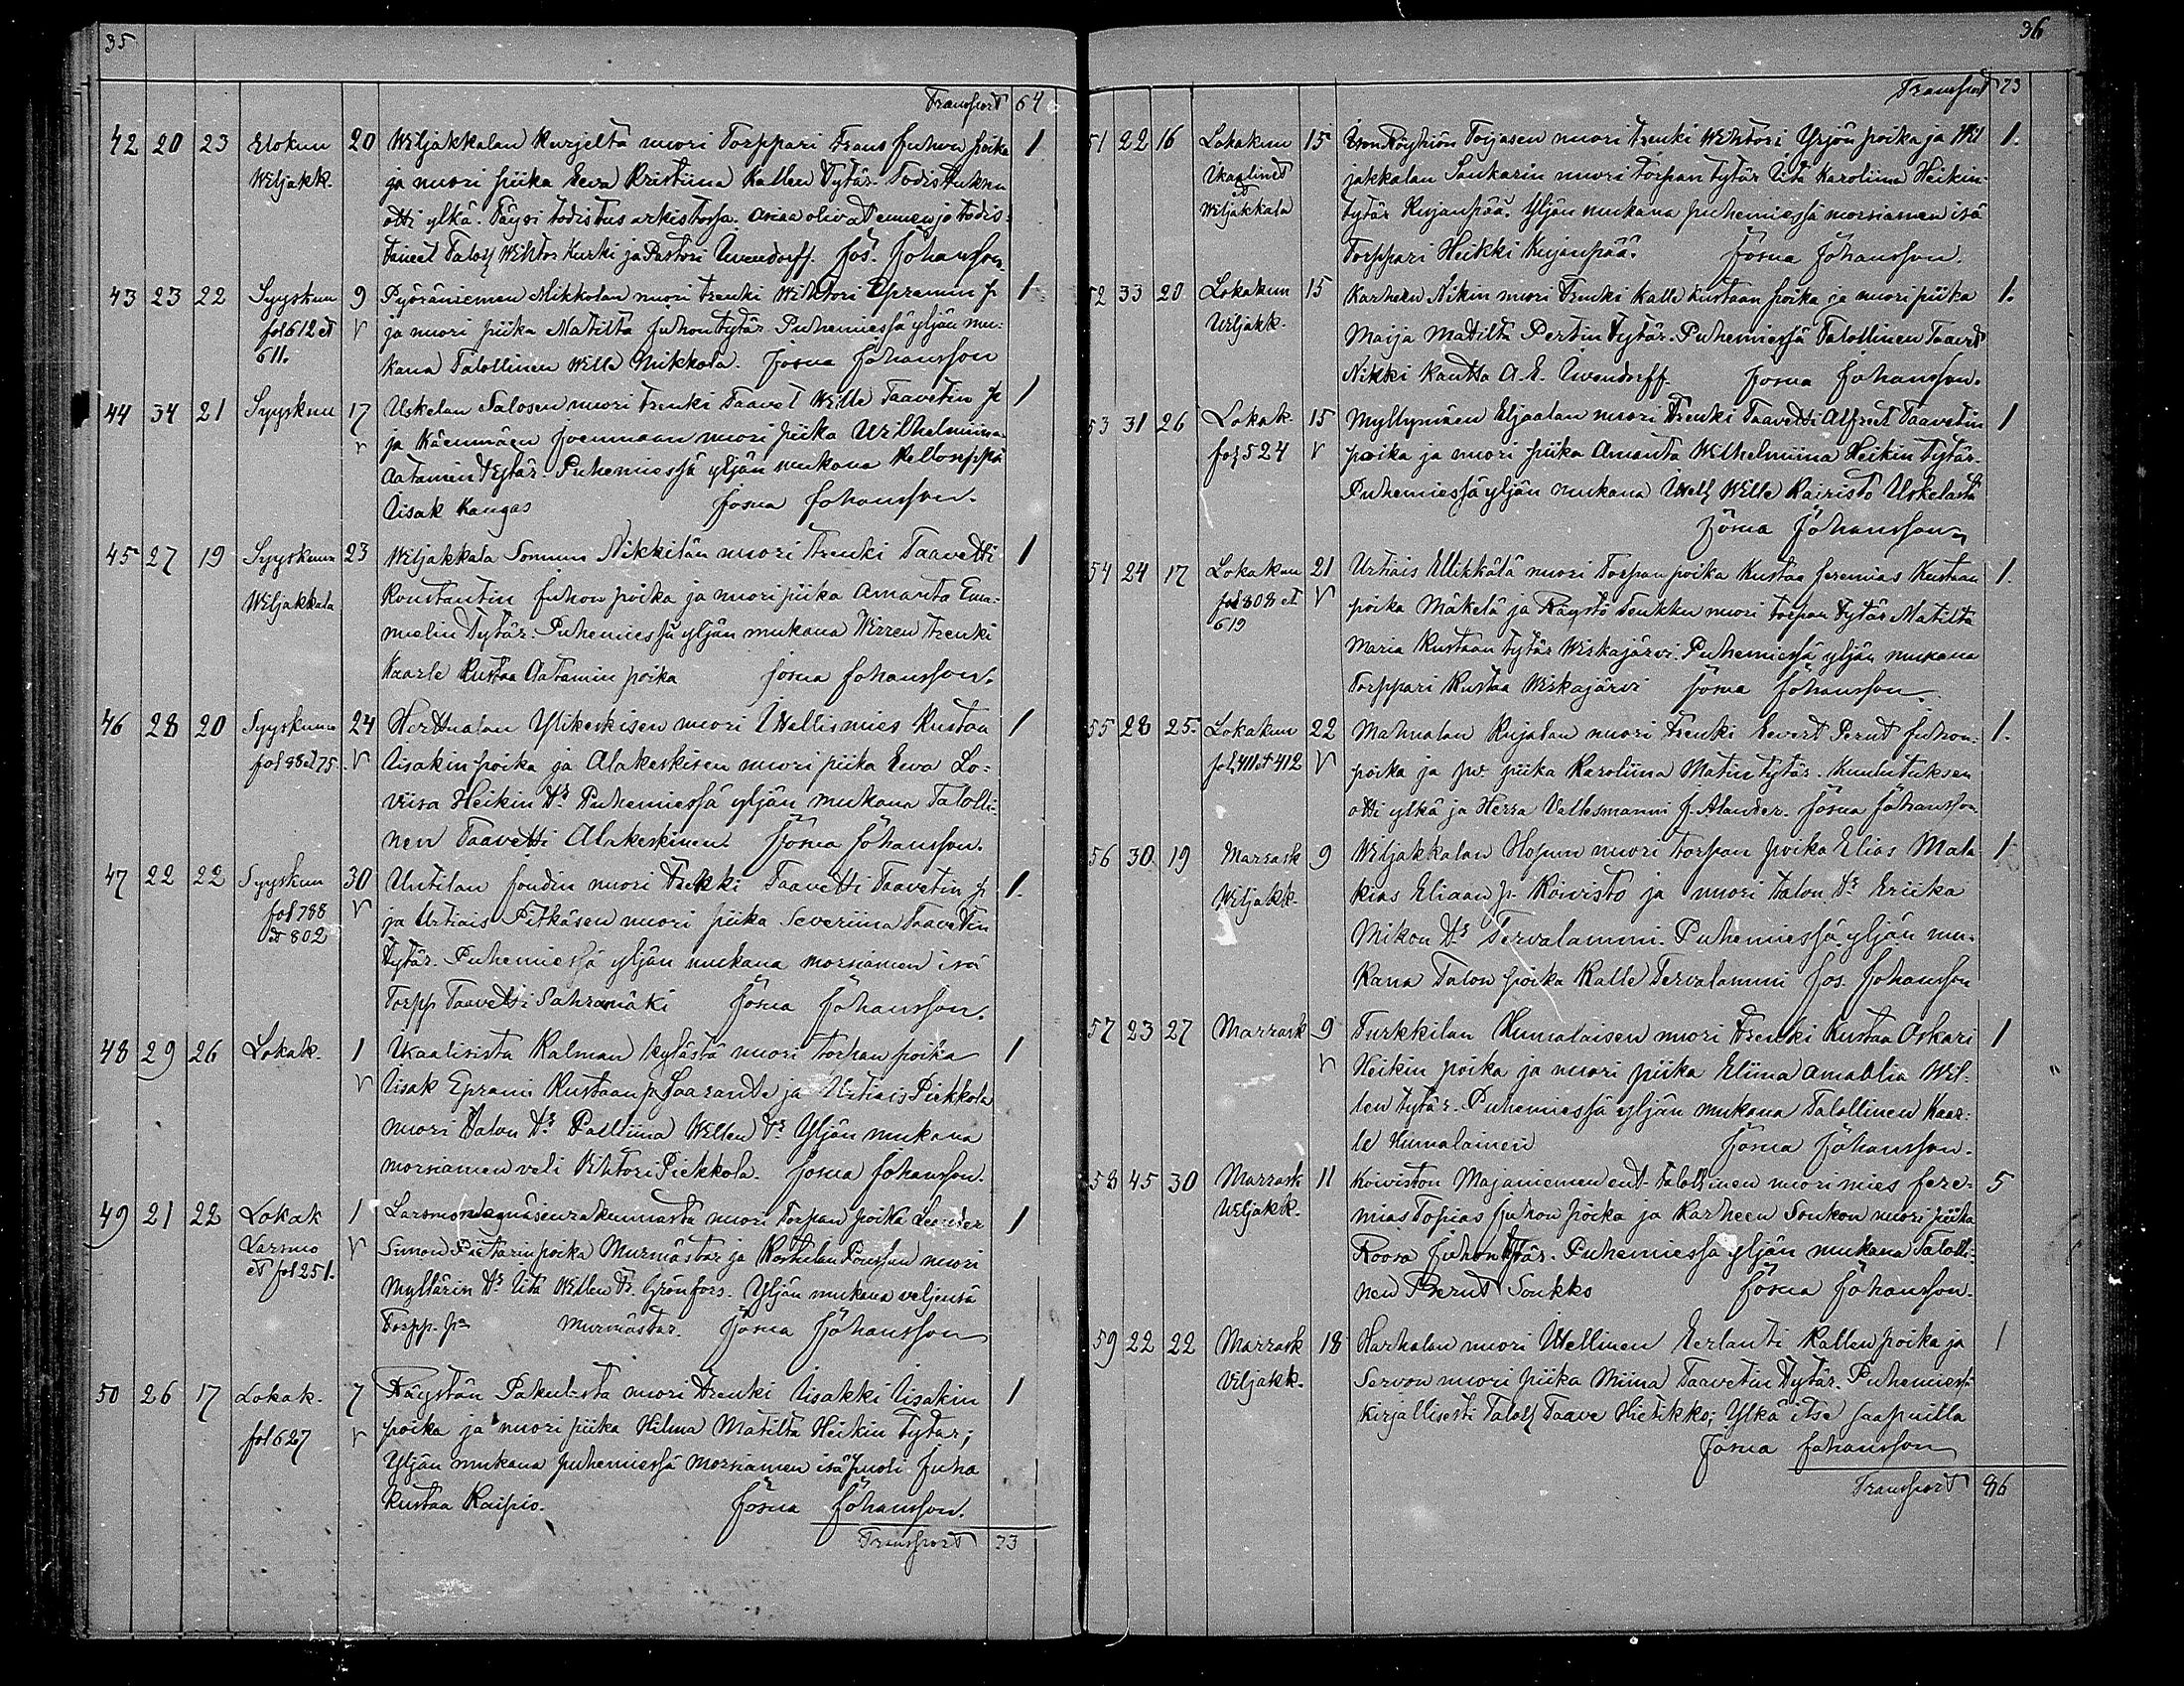 35
Transport 64
42 20 23 Elokuu 20 Wiljakkalan Kurjelta nuori Torppari Frans Juhon poika 1
Wiljakk. ja nuori piika Eewa Kristiina Kallen tytär. Todistuksen
otti ylkä. Täysi todistus arkistossa. Asiaa olivat ennen jo todis-
taneet Talol Wihtor Kurki ja Pastori Uwendorff. Jos. Johansson.
43 23 22 Syyskuu 9 Pyöräniemen Mikkolan nuori trenki Wihtori Epramin p 1
fol 612 et v ja nuori piika Matilta Juhontytär Puhemiessä yljän mu-
611. kana Talollinen Wille Mikkola. Josua Johansson
44 34 21 Syyskuu 17 Uskelan Salosen nuori trenki Taavet Wille Taavetin p 1
v ja Käenmäen Joenmaan nuori piika Wilhelmiina
Aatamin tytär. Puhemiessä yljän mukana
Iisak Kangas Josua Johansson.
45 27 19 Syyskuu 23 Wiljakkala Sommun Nikkilän nuori trenki Taavetti 1
Wiljakkala Konstantin Juhon poika ja nuori piika Amanta Ema-
nuelin tytär. Puhemiessä yljän mukana Wirren trenki
Kaarle Kustaa Aatamin poika Josua Johansson.
46 28 20 Syyskuu 24 Herttualan Ylikeskisen nuori Itsellismies Kustaa 1
fol 88 et 75. v Iisakin poika ja Alakeskisen nuori piika Eewa Lo-
viisa Heikin tr. Puhemiessä yljän mukana Talolli-
nen Taavetti Alakeskinen Josua Johansson.
47 22 22 Syyskuu 30 Untilan Joudin nuori trekki Taavetti Taavetin p 1.
fol 788 v ja Urtiais Pitkäsen nuori piika Severiina Taavetin
et 802 tytär. Puhemiessä yljän mukana morsiamen isä
Torpp Taavetti Sahramäki Josua Johansson.
48 29 26 Lokak. 1 Ikaalisista Kalman kylästä nuori torpan poika 1
v Iisak Eprami Kustaan p. Saaranta ja Urtiais Piekkola
nuori Talon tr. Palliina Willen tr. Yljän mukana
morsiamen veli Vihtori Piekkola. Josua Johansson.
49 21 22 Lokak 1 nuori Torpan poika Leander 1
Larsmo v Simon Pietarin poika Murmästar ja nuori
et fol 251. Myllärin tr. Iita Willen tr. Grönfors. Yljän mukana veljensä
Torpp. pa Murmästar. Josua Johansson
50 26 17 Lokak. 7 Röystön nuori trenki Iisakki Iisakin 1
fol 627 v poika ja nuori piika Hilma Matilta Heikin tytar;
Yljän mukana puhemiessä morsiamen isäpuoli Juha
Kustaa Raipio. Josua Johansson.
Transport 73
36
Transport 73
51 22 16 Lokakuu 15 Toijasen nuori trenki Wihtori Yrjön poika ja Wil 1.
Ikaalinet jakkalan Sankarin nuori torpan tytär Iita Karoliina Heikin
et tytär Kujanpää. Yljän mukana puhemiessä morsiamen isä
Wiljakkala Torppari Heikki Kujanpää. Josua Johansson.
52 33 20 Lokakuu 15 Karheen Nikin nuori trenki Kalle Kustaan poika ja nuori piika 1.
Wiljakk. Maija Matilta Pertin tytär. Puhemiessä Talollinen Taavet
Nikki kautta A. E. Uwendorff. Josua Johansson.
53 31 26 Lokak. 15 Myllymäen Eljaalan nuori trenki Taavetti Alfret Taavetin 1
fol 524 v poika ja nuori piika Amanta Wilhelmiina Heikin tytär.
Puhemiessä yljän mukana Itsell Wille Kairisto Uskelasta
Josua Johansson
54 24 17 Lokakuu 21 Urtiais Ellikkälä nuori Torpan poika Kustaa Jeremias Kustaan 1.
fol 808 et v poika Mäkelä ja Röystö Tenkku nuori torpan tytär Matilta
619 Maria Kustaan tytär Werkajärvi. Puhemiessä yljän mukana
Torppari Kustaa Werkajärvi Josua Johansson.
55 28 25. Lokakuu 22 Mahnalan Kujalan nuori trenki Eevert Pernt Juhon- 1.
fol 411 et 412 v poika ja piika Karoliina Matin tytär. Kuulutuksen
otti ylkä ja Herra Vallesmanni J. Alander. Josua Johansson
56 30 19 Marrask 9 Wiljakkalan Hosun nuori torpan poika Elias Mala 1
Wiljakk. kias Eliaan p. Koivisto ja nuori talon tr Eriika
Mikon tr. Tervalammi. Puhemiessä yljän mu-
kana Talon poika Kalle Tervalammi Jos. Johansson
57 23 27 Marrask 9 Turkkilan Humalaisen nuori trenki Kustaa Oskari 1
v Heikin poika ja nuori piika Eliina Amallia Wil-
len tytär. Puhemiessä yljän mukana Talollinen Kaar-
le Humalainen Josua Johansson.
58 45 30 Marrask 11 Koiviston Majaniemen ent. Talollinen nuorimies Jere- 5
Wiljakk. mias Topias Juhon poika ja Karheen Soukon nuori piika
Roosa Juhon tytär. Puhemiessä yljän mukana Talolli-
nen Bernt Soukko Josua Johansson.
59 22 22 Marrask 18 Harhalan nuori Itsellinen Eerlanti Kallen poika ja 1
Viljakk. Sarvon nuori piika Miina Taavetin tytär. Puhemiessä
kirjallisesti Talol Taave Hietikko; Ylkä itse saapuilla
Josua Johansson
Transport 86